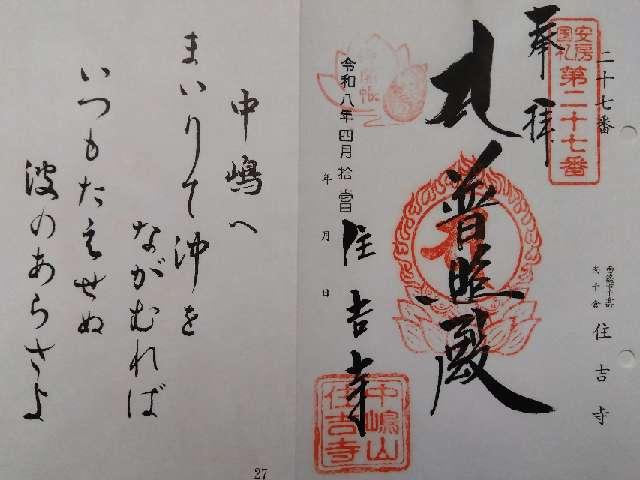 二十七番
安房
国札
第二十七番
奉拝
札
普照殿
令和八年四月拾壹日
年 月 日
住吉寺
住吉寺
中嶋山
住吉寺
中嶋へ
まいりて沖を
ながむれば
いつもたえせぬ
波のあらさよ
27